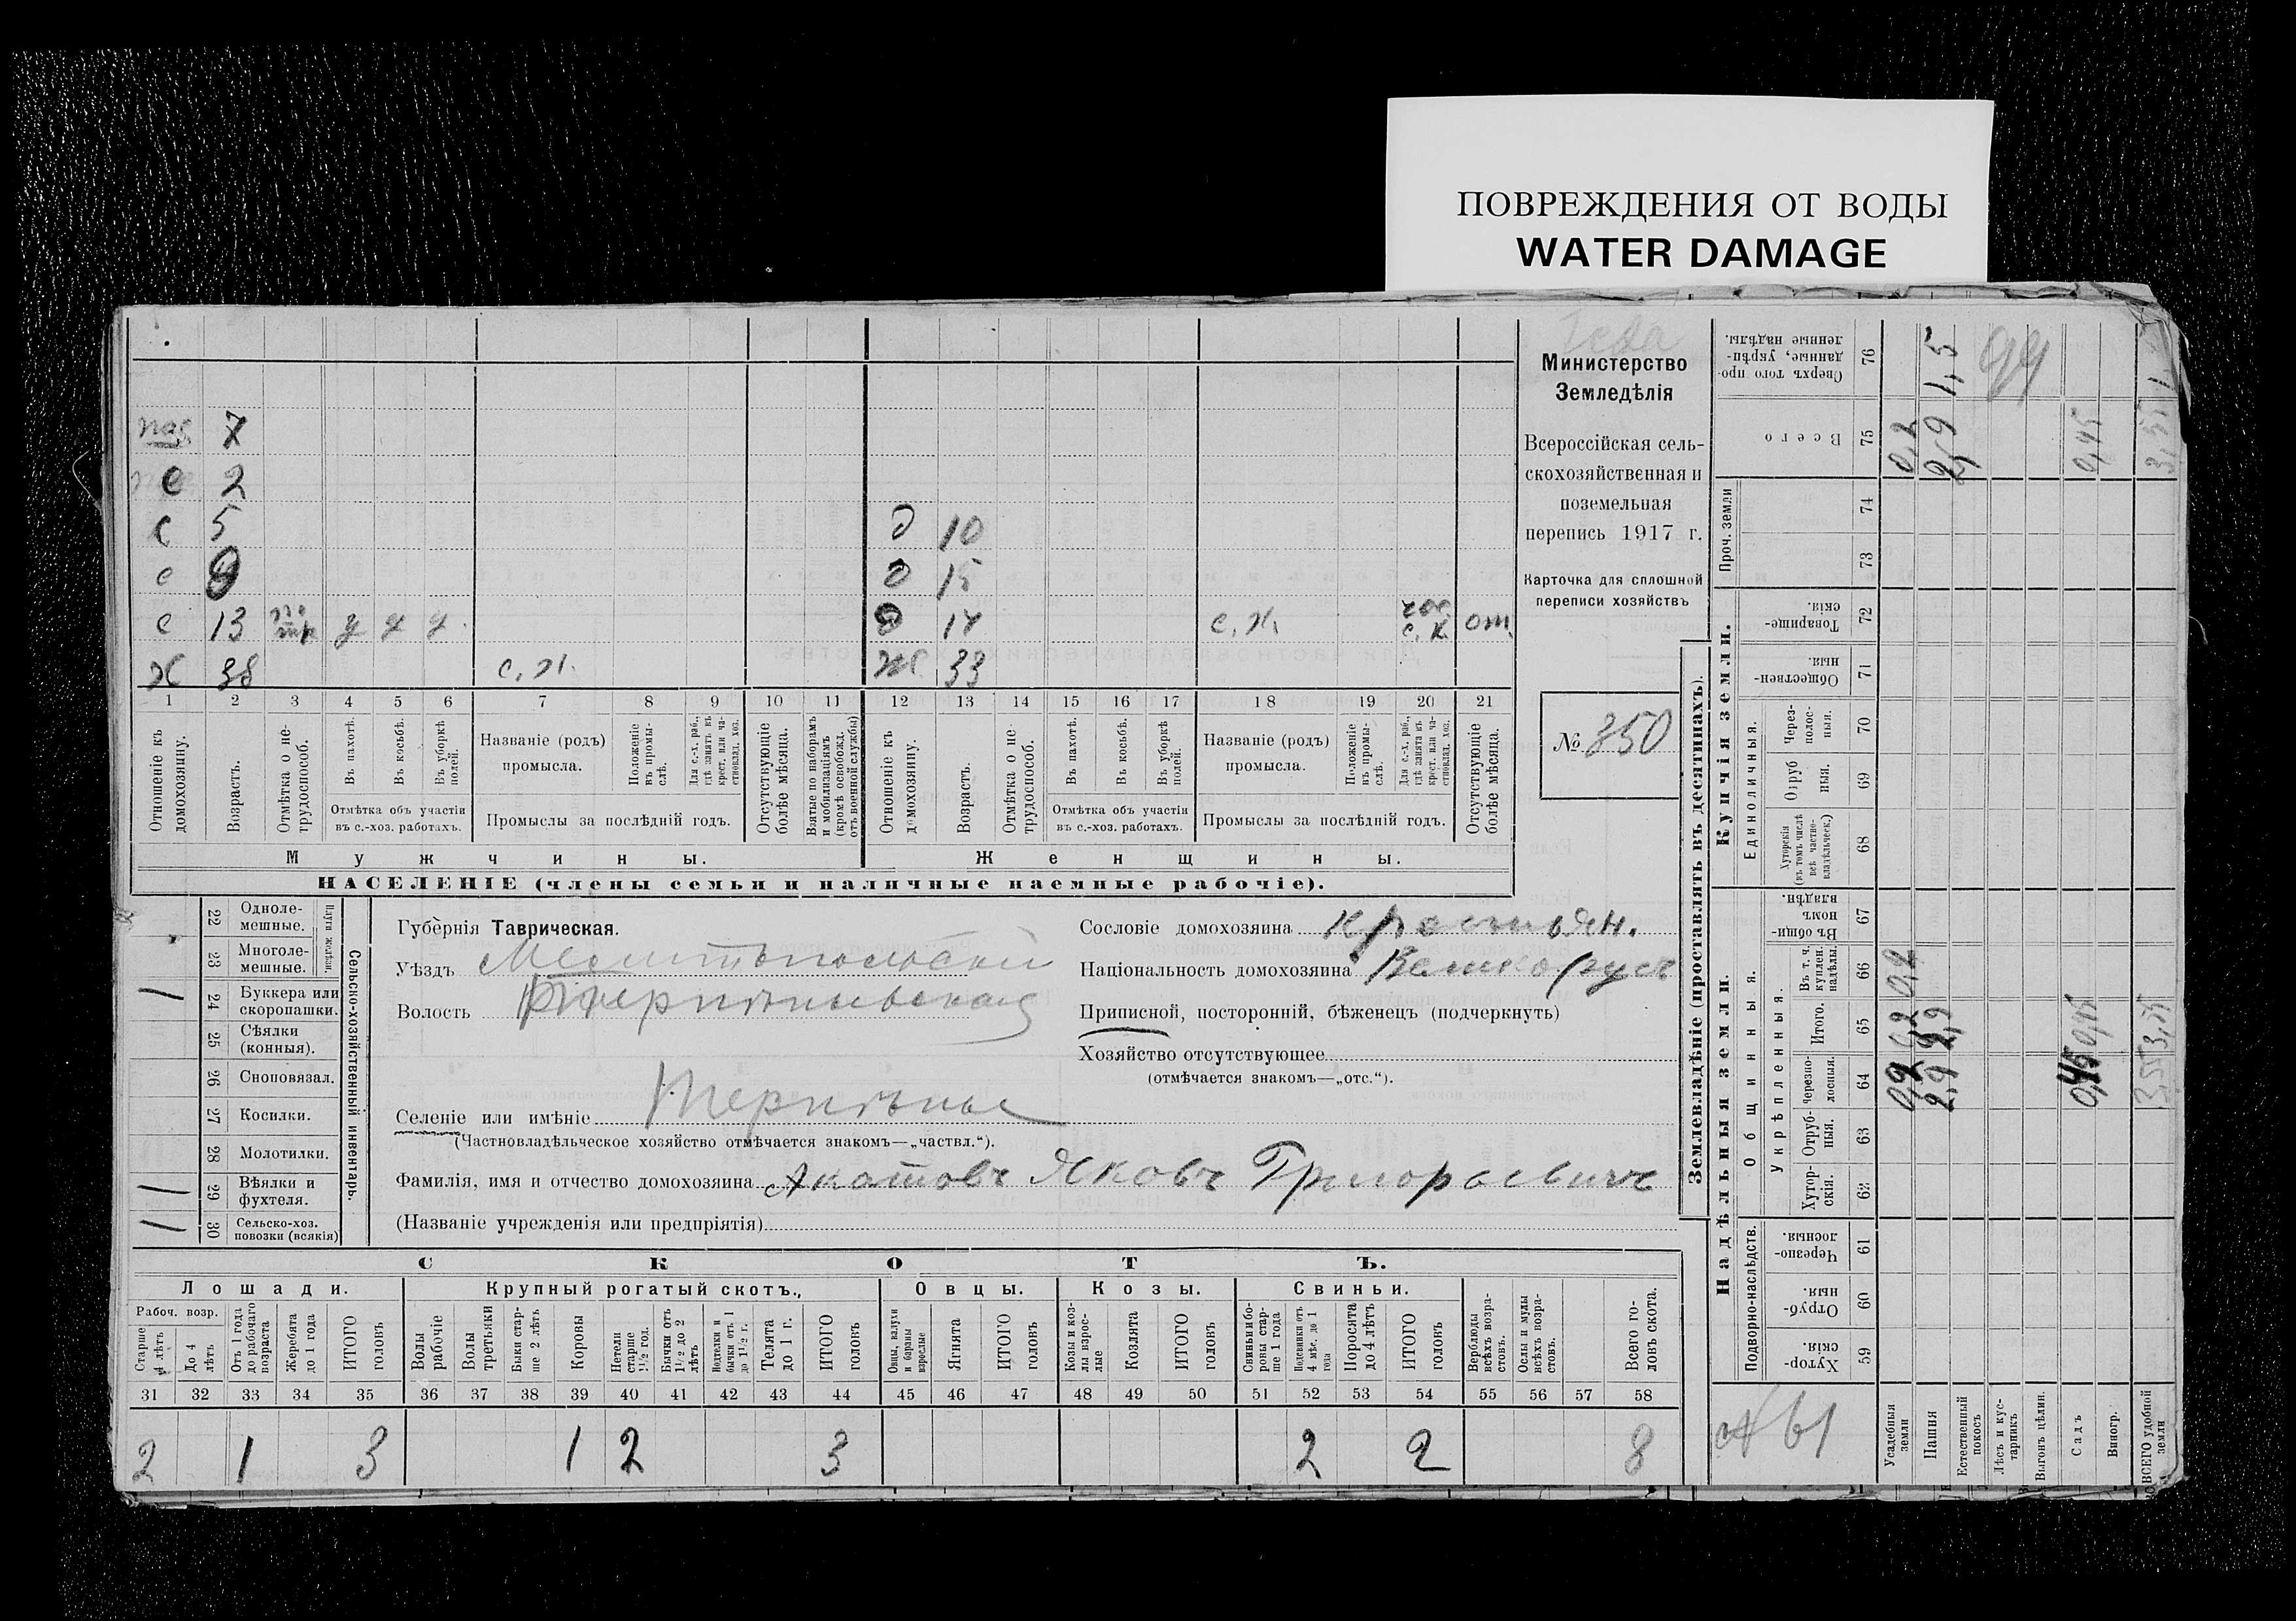 ПОВРЕЖДЕНИЯ ОТ ВОДЫ
WATER DAMAGE
7
с 2
с 5 д 10
с д 15
с 13 у с. х. с. х. от.
ж 38 с. х. ж 33
1 2 3 4 5 6 7 8 9 10 11 12 13 14 15 16 17 18 19 20 21
Отношеніе къ домохозяину.
Возрастъ.
Отмѣтка о нетрудоспособ.
Въ пахотѣ.
Въ косьбѣ.
Въ уборкѣ полей.
Отмѣтка объ участіи
въ с.-хоз. работахъ.
Названіе (родъ)
промысла.
Положеніе въ промыслѣ.
Для с.-х. раб., гдѣ занятъ въ крест. или частновлад. хоз.
Промыслы за послѣдній годъ.
Отсутствующіе болѣе мѣсяца.
Взятые по наборамъ и мобилизаціямъ (кромѣ освобожд. отъ военной службы)
Отношеніе къ домохозяину.
Возрастъ.
Отмѣтка о нетрудоспособ.
Въ пахотѣ.
Въ косьбѣ.
Въ уборкѣ полей.
Отмѣтка объ участіи
въ с.-хоз. работахъ.
Названіе (родъ)
промысла.
Положеніе въ промыслѣ.
Для с.-х. раб., гдѣ занята въ крест. или частновлад. хоз.
Промыслы за послѣдній годъ.
Отсутствующіе болѣе мѣсяца.
Мужчины. Женщины.
НАСЕЛЕНІЕ (члены семьи и наличные наемные рабочіе).
Министерство
Земледѣлія
Всероссійская сель-
скохозяйственная и
поземельная
перепись 1917 г.
Карточка для сплошной
переписи хозяйствъ
№ 350
22 Одноле-
мешные.
23 Многоле-
мешные.
Плуги желѣзн.
1 24 Буккера или
скоропашки.
25 Сѣялки
(конныя).
26 Сноповязал.
27 Косилки.
28 Молотилки.
1 29 Вѣялки и
фухтеля.
1 30 Сельско-хоз.
повозки (всякія)
Сельско-хозяйственный инвентарь.
Губернія Таврическая.
Уѣздъ Мелитопольскій
Волость
Селеніе или имѣніе Терпѣнье
(Частновладѣльческое хозяйство отмѣчается знакомъ—„частвл.“).
Фамилія, имя и отчество домохозяина Акатовъ Яковъ Григорьевичъ
(Названіе учрежденія или предпріятія)
Сословіе домохозяина крестьян.
Національность домохозяина Великорусъ
Приписной, посторонній, бѣженецъ (подчеркнуть)
Хозяйство отсутствующее
(отмѣчается знакомъ—„отс.“).
СКОТЪ.
Лошади. Крупный рогатый скотъ. Овцы. Козы. Свиньи.
Рабоч. возр.
Старше 4 лѣтъ
До 4 лѣтъ
Отъ 1 года до рабочаго возраста
Жеребята до 1 года
ИТОГО головъ
Волы рабочіе
Волы третьяки
Быки старше 2 лѣтъ
Коровы
Нетели старше 1½ год.
Бычки отъ 1½ до 2 лѣтъ
Подтелки и бычки отъ 1 до 1½ г.
Телята до 1 г.
ИТОГО головъ
Овцы, валухи и бараны взрослые
Ягнята
ИТОГО головъ
Козы и козлы взрослые
Козлята
ИТОГО головъ
Свиньи и боровы старше 1 года
Подсвинки отъ 4 мѣс. до 1 года
Поросята до 4 лѣтъ
ИТОГО головъ
Верблюды всѣхъ возрастовъ.
Ослы и мулы всѣхъ возрастовъ.
Всего головъ скота.
31 32 33 34 35 36 37 38 39 40 41 42 43 44 45 46 47 48 49 50 51 52 53 54 55 56 57 58
2 1 3 1 2 3 2 2 8
Землевладѣніе (проставлять въ десятинахъ).
Купчія земли.
Надѣльныя земли.
Сверхъ того проданные, укрѣпленные надѣлы. 76 1,5
Всего 75 0,2 2,9 0,45 3,55
Проч. земли 74
73
Товарищескія. 72
Общественныя. 71
Единоличныя.
Черезполосныя. 70
Отрубныя. 69
Хуторскія (въ томъ числѣ всѣ частновладѣльческ.) 68
Общинныя.
Въ общинномъ владѣн. 67
Укрѣпленныя.
Въ т. ч. куплен. надѣлы. 66 0,2
Итого. 65 0,2 2,9 0,45 3,55
Черезполосныя. 64 0,2 2,9 0,45 3,55
Отрубныя. 63
Хуторскія. 62
Подворно-наслѣдств.
Черезполосныя. 61
Отрубныя. 60
Хуторскія. 59
Усадебныя земли
Пашня
Естественный покосъ
Лѣсъ и кустарникъ
Выгонъ цѣлин.
Садъ
Виногр.
ВСЕГО удобной земли